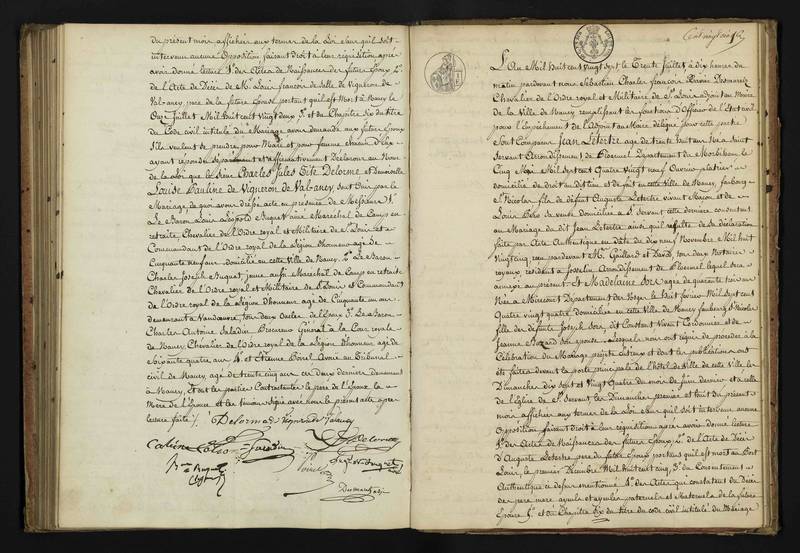 du présent mois affichés aux termes de la Loi sans qu'il soit
intervenu aucune Opposition faisant droit à leur réquisition après
avoir donné lecture 1° des Actes de Naissances des futurs Epoux 2°
de l'Acte de Décès de M. Louis François de Salle de Vigneron de
Valancy, père de la future Epouse portant qu'il est Mort à Nancy le
Onze Juillet Mil huit cent vingt deux 3° et du Chapitre Six du titre
du Code civil intitulé du Mariage avons demandé aux futurs Epoux
s'ils veulent se prendre pour Mari et pour femme chacun d'eux
ayant répondu séparément et affirmativement Déclarons au Nom
de la Loi que le Sieur Charles Jules Tite Delorme et Demoiselle
Louise Pauline de Vigneron de Valancy, sont Unis par le
Mariage, de quoi avons dressé acte en présence de Messieurs 1°
Le Baron Louis Léopold Buquet Maréchal de Camp en
retraite Chevalier de l'Ordre royal et Militaire de St Louis et
Commandant de l'Ordre royal de la Légion d'honneur âgé de
Cinquante neuf ans domicilié en cette Ville de Nancy 2° Le Baron
Charles Joseph Buquet jeune aussi Maréchal de Camp en retraite
Chevalier de l'Ordre royal et Militaire de St Louis et Commandant
de l'Ordre royal de la Légion d'honneur âgé de Cinquante un ans
demeurant à Vandoeuvre, tous deux Oncles de l'Epoux 3° Le Baron
Charles Antoine Saladin Procureur Général à la Cour royale
de Nancy Chevalier de l'Ordre royal de la Légion d'honneur âgé de
Soixante quatre ans 4° et Etienne Poirel Avocat au Tribunal
civil de Nancy, âgé de trente cinq ans ces deux derniers demeurant
à Nancy, et ont les parties Contractantes le père de l'Epoux la
Mère de l'Epouse et les témoins Signé avec nous le présent acte après
lecture faite /.
Delorme Vigneron de Valancy
Saladin Delorme
Poirel Buquet
Cent vingt
L'An Mil huit cent vingt sept le Trente Juillet à dix heures du
matin pardevant nous Sébastien Charles François Xavier Desmarets
Chevalier de l'Ordre royal et Militaire de St Louis adjoint au Maire
de la Ville de Nancy remplissant les fonctions d'Officier de l'Etat civil
pour l'Empêchement de l'Adjoint au Maire délégué pour cette partie
Sont Comparus Jean Letertre âgé de trente huit ans Né à Saint
Servant Arrondissement de Ploermel Département du Morbihan le
Cinq Mai Mil Sept cent Quatre Vingt neuf Ouvrier platrier
domicilié de Droit audit lieu et de fait en cette Ville de Nancy, faubourg
St Nicolas fils de défunt Auguste Letertre vivant Maçon et de
Louise Thos sa veuve domiciliée à St Servant cette dernière consentant
au Mariage du dit Jean Letertre ainsi qu'il résulte de sa déclaration
faite par Acte Authentique en date du dix neuf Novembre Mil huit
vingt cinq reçu pardevant Me Gaillard et David, tous deux Notaires
royaux résidant à Josselin Arrondissement de Ploermel lequel sera
annexé au présent Et Madelaine Soré âgée de quarante trois ans
Née à Mirecourt Département des Vosges le huit février Mil Sept cent
Quatre vingt quatre domiciliée en cette Ville de Nancy faubourg St Nicolas
fille des défunts Joseph Soré, dit Constant Vivant Cordonnier et de
Jeanne Bozard son épouse Lesquels nous ont requis de procéder à la
Célébration du Mariage projeté entr'eux et dont les publications ont
été faites devant la porte principale de l'Hôtel de Ville de cette Ville les
Dimanches dix sept et vingt Quatre du mois de juin dernier et à celle
de l'Eglise de St Servant les Dimanches premier et huit du présent
mois, affichés aux termes de la Loi sans qu'il soit intervenu aucune
Opposition faisant droit à leur réquisition après avoir donné lecture
1° des Actes de Naissances des futurs Epoux 2° de l'Acte de Décès
d'Auguste Letertre père du futur Epoux portant qu'il est mort au Port
Louis, le premier Décembre Mil huit cent cinq 3° du Consentement
Authentique ci dessus mentionné 4° des Actes qui constatent les Décès
des père mère ayeuls et ayeules paternels et Maternels de la future
Epouse 5° et du Chapitre Six du titre du code civil intitulé du Mariage